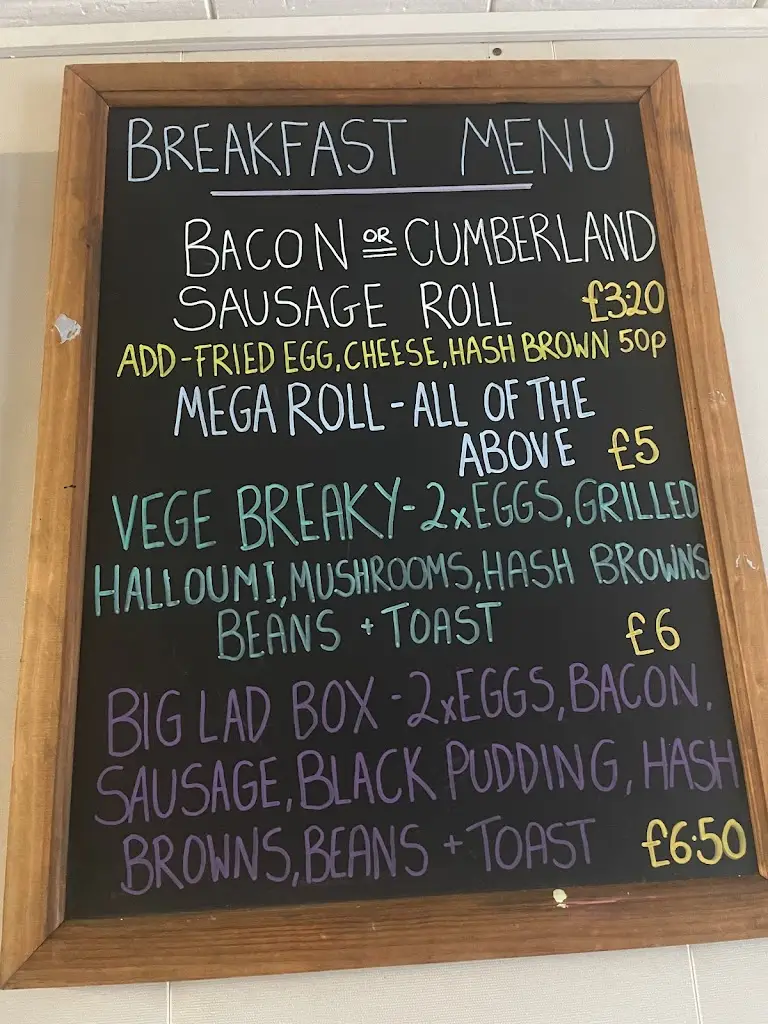 BREAKFAST MENU
BACON OR CUMBERLAND
SAUSAGE ROLL £3.20
ADD-FRIED EGG, CHEESE, HASH BROWN 50p
MEGA ROLL - ALL OF THE
ABOVE £5
VEGE BREAKY - 2xEGGS, GRILLED
HALLOUMI, MUSHROOMS, HASH BROWNS
BEANS + TOAST £6
BIG LAD BOX - 2xEGGS, BACON,
SAUSAGE, BLACK PUDDING, HASH
BROWNS, BEANS + TOAST £6.50